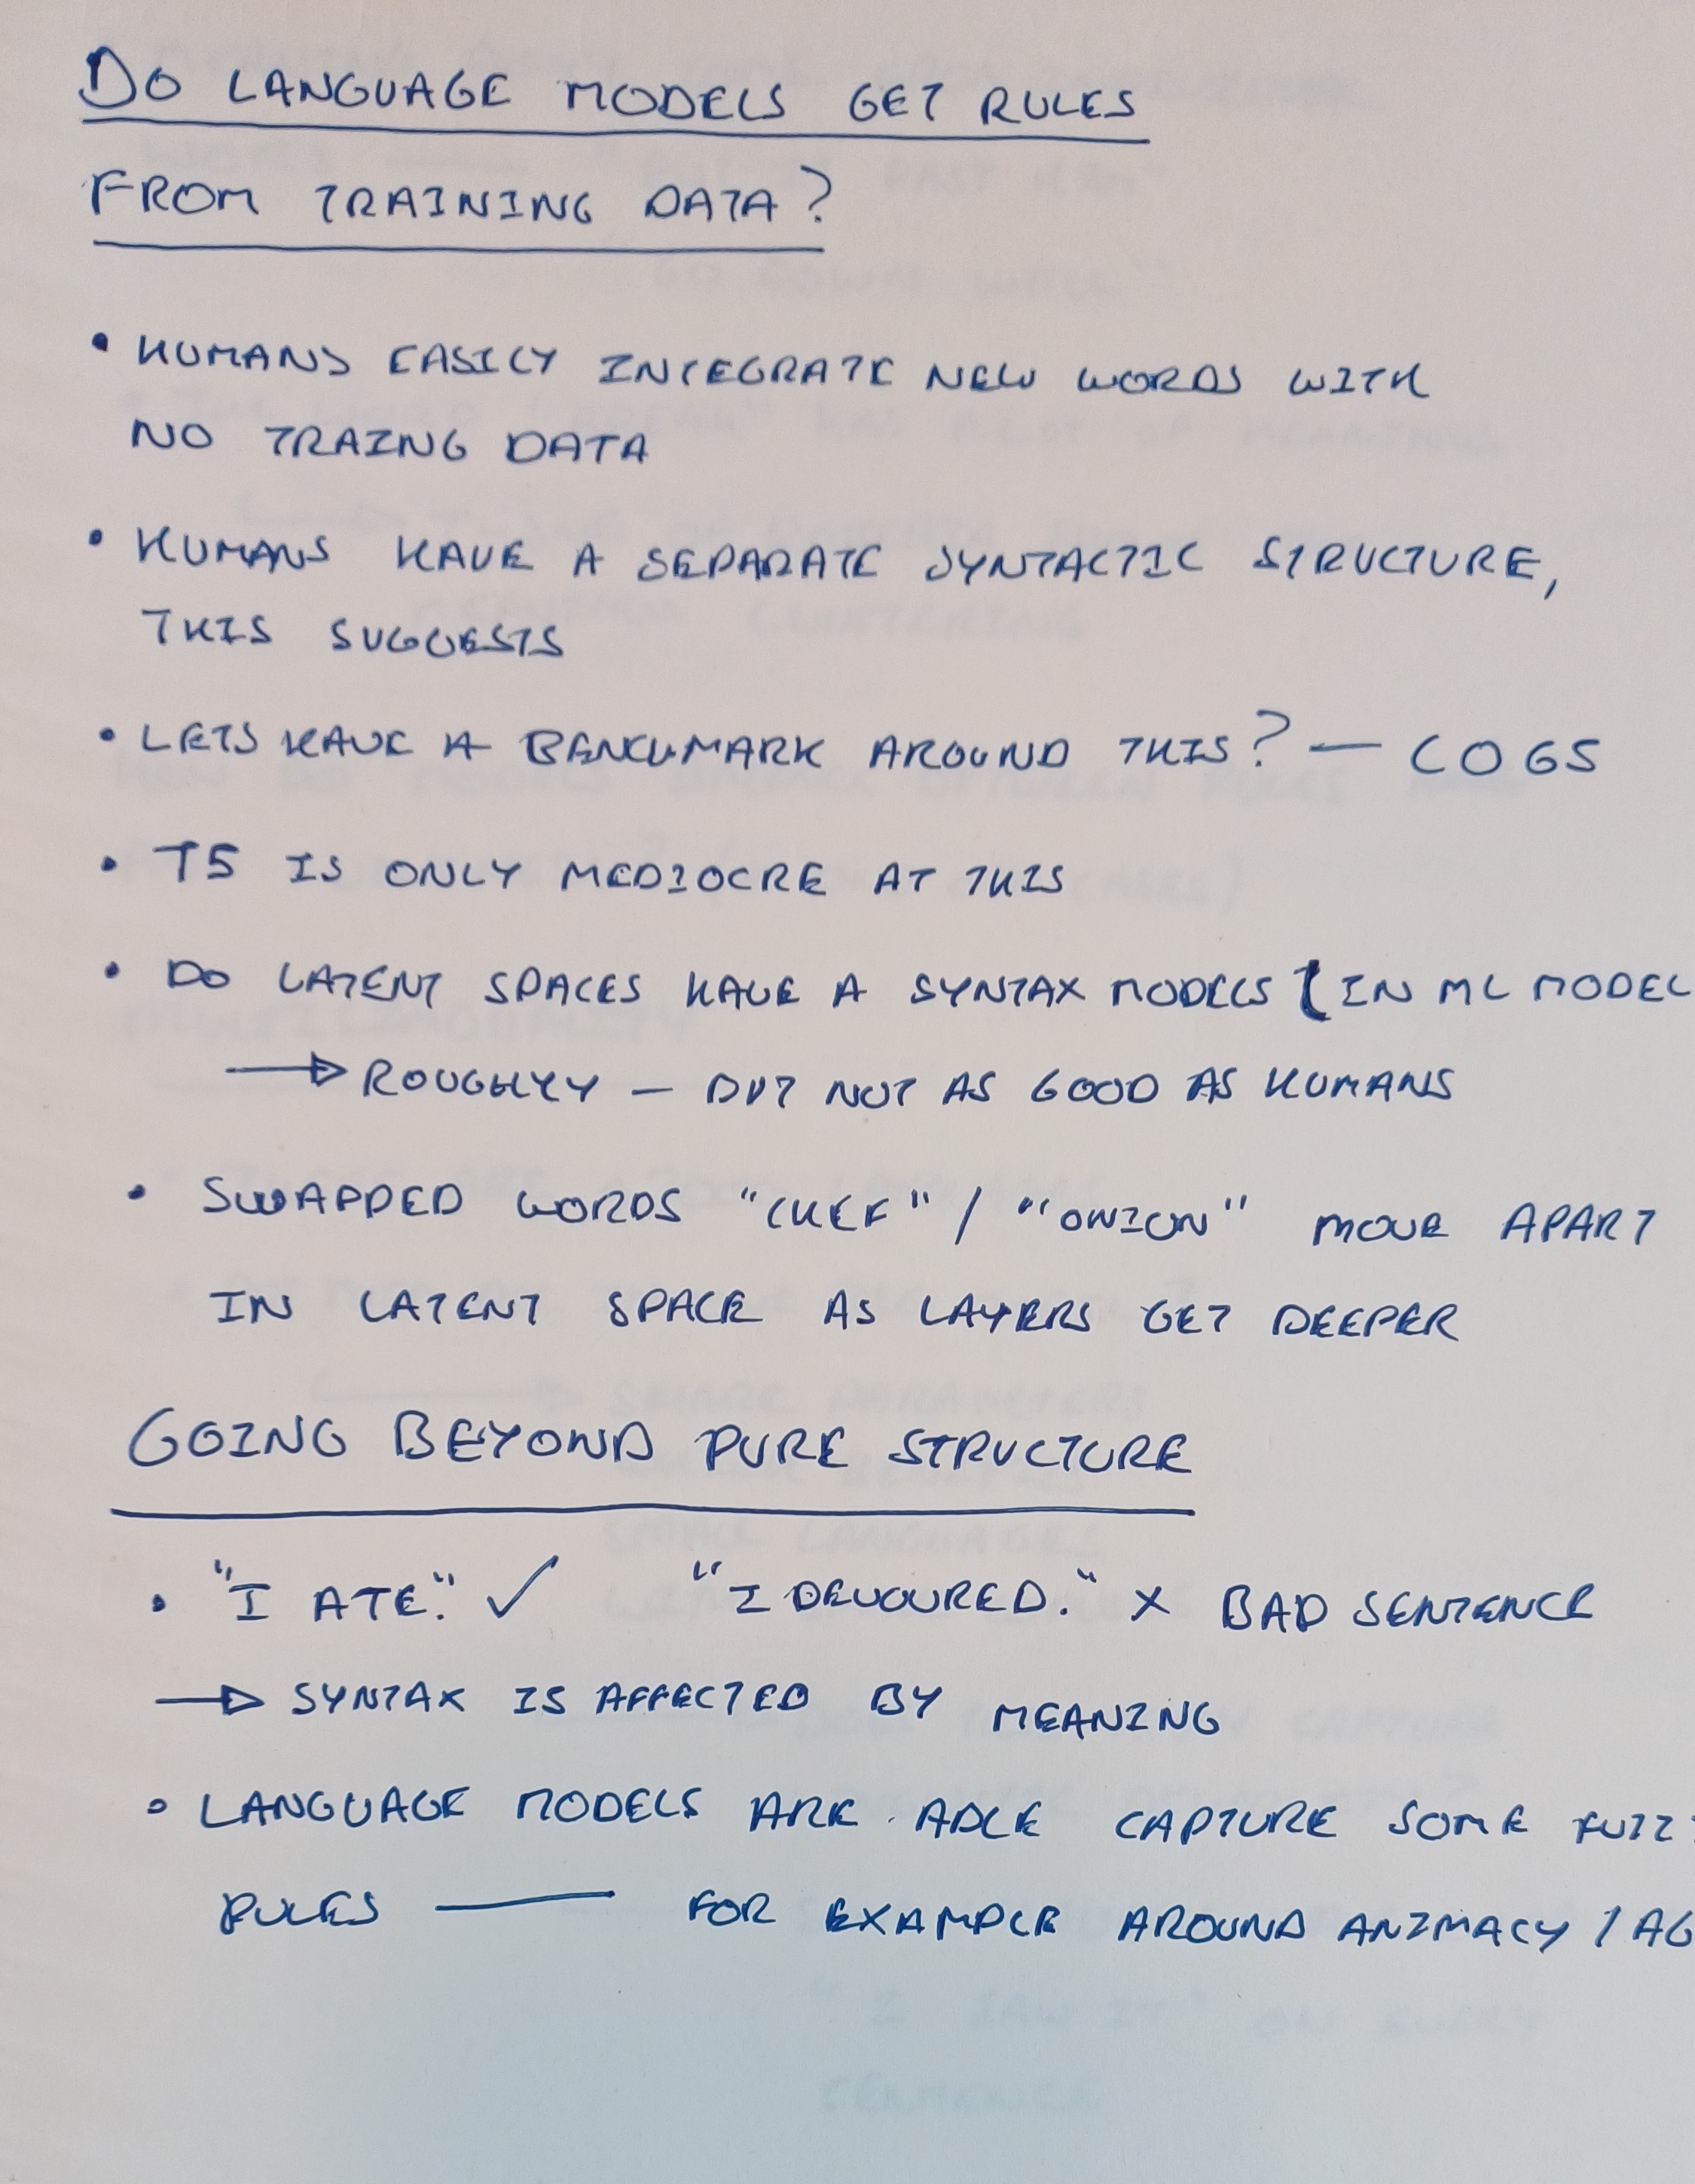 DO LANGUAGE MODELS GET RULES
FROM TRAINING DATA?
• HUMANS EASILY INTEGRATE NEW WORDS WITH
NO TRAING DATA
• HUMANS HAVE A SEPARATE SYNTACTIC STRUCTURE,
THIS SUGGESTS
• LETS HAVE A BENCHMARK AROUND THIS? — COGS
• T5 IS ONLY MEDIOCRE AT THIS
• DO LATENT SPACES HAVE A SYNTAX MODELS (IN ML MODEL
→ ROUGHLY — BUT NOT AS GOOD AS HUMANS
• SWAPPED WORDS "CHEF" / "ONION" MOVE APART
IN LATENT SPACE AS LAYERS GET DEEPER
GOING BEYOND PURE STRUCTURE
• "I ATE." ✓ "I DEVOURED." X BAD SENTENCE
→ SYNTAX IS AFFECTED BY MEANING
• LANGUAGE MODELS ARE ABLE CAPTURE SOME FUZZ
RULES — FOR EXAMPLE AROUND ANIMACY / AG